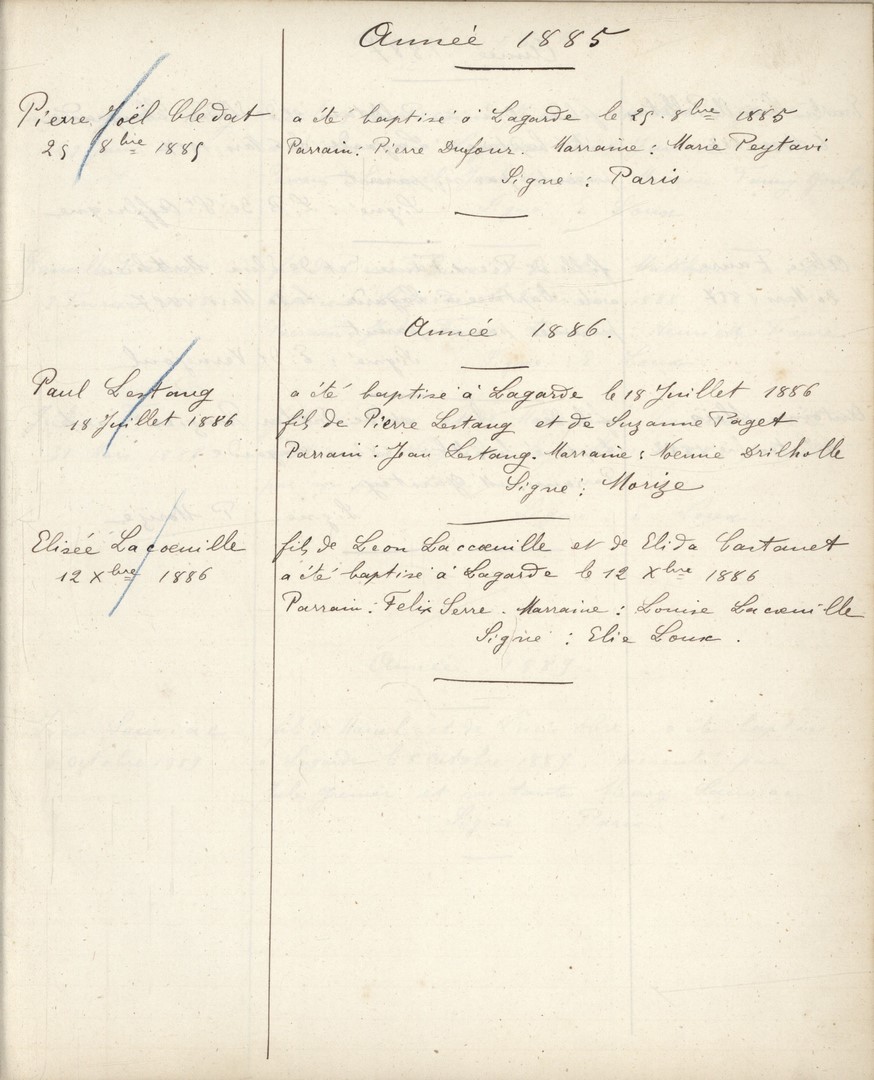 Année 1885
Pierre Joël Cledat
25 8bre 1885
a été baptisé à Lagarde le 25. 8bre 1885
Parrain: Pierre Dufour. Marraine: Marie Peytavi
Signé: Paris
Année 1886.
Paul Lestang
18 Juillet 1886
a été baptisé à Lagarde le 18 Juillet 1886
fils de Pierre Lestang et de Suzanne Paget
Parrain: Jean Lestang. Marraine: Noemie Drilholle
Signé: Morize
Elisée Lacoeuille
12 Xbre 1886
fils de Leon Laccoeuille et de Elida Castanet
a été baptisé à Lagarde le 12 Xbre 1886
Parrain: Felix Serre. Marraine: Louise Lacoeuille
Signé: Elie Loux.